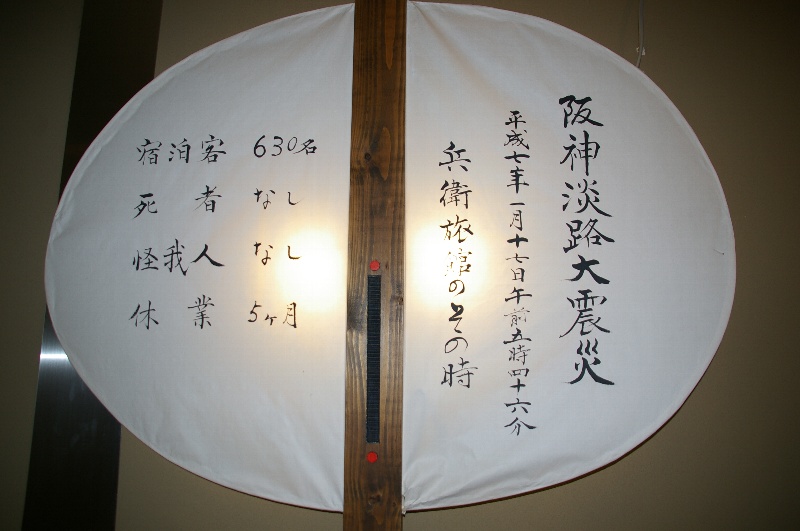 阪神淡路大震災
平成七年一月十七日午前五時四十六分
兵衛旅館のその時
宿泊客 630名
死者 なし
怪我人 なし
休業 5ヶ月